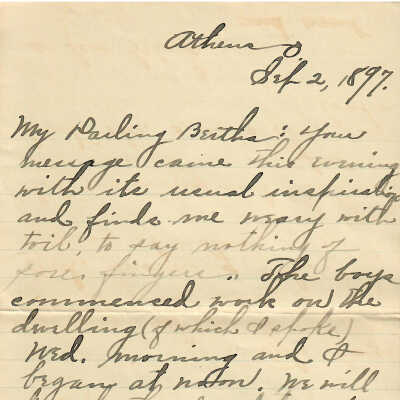 Athens O.
Sep 2, 1897.
My Darling Bertha: Your
message came this evening
with its usual inspiration
and finds me weary with
toil, to say nothing of
sore fingers. The boys
commenced work on the
dwelling (of which I spoke)
Wed. morning and I
began at noon. We will